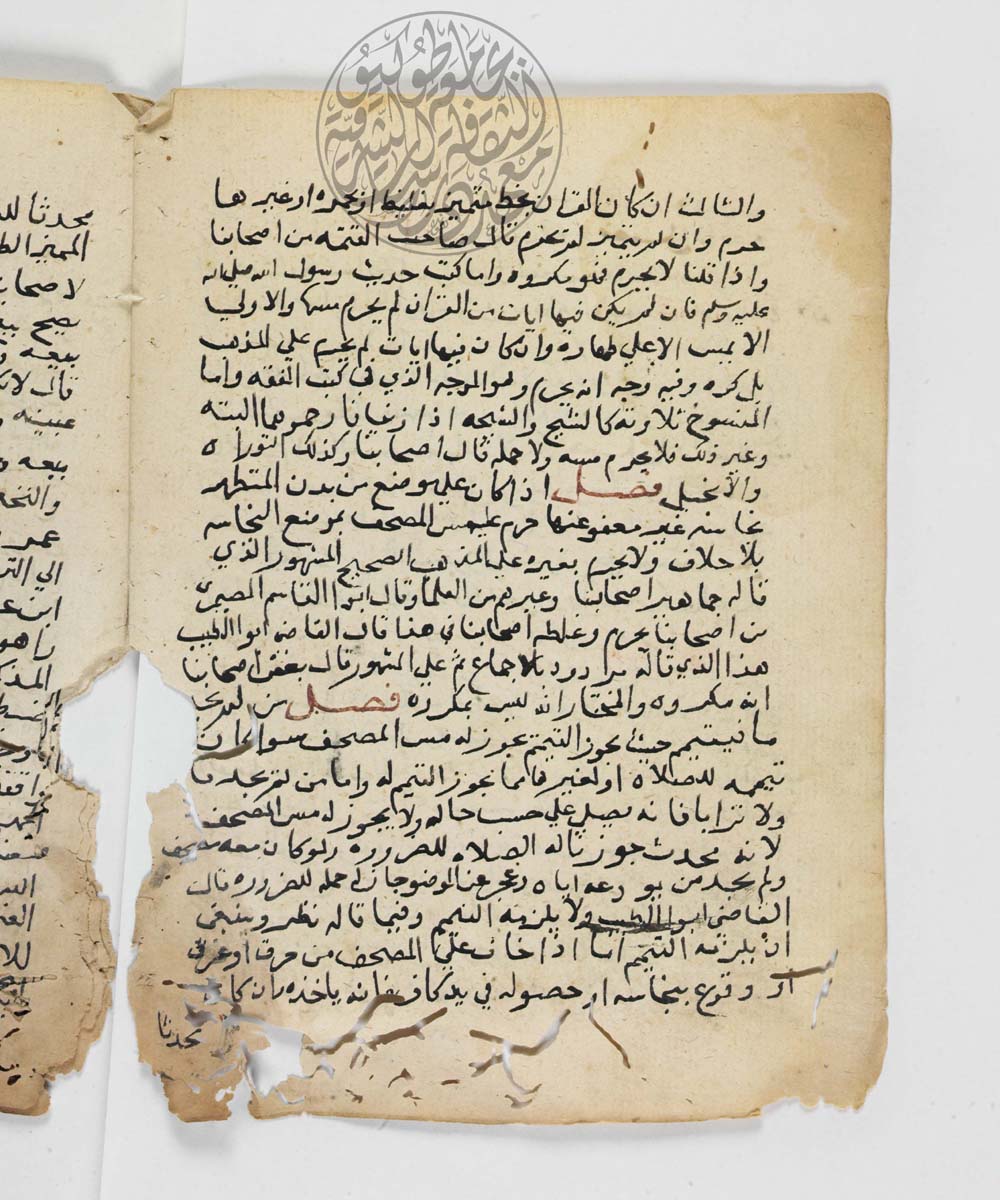 والثالث ان كان القران بخط متميز بغلظ او بحمره او غيرها
حرم وان لم يتميز لم يحرم قال صاحب التتمه من اصحابنا
واذا قلنا لا يحرم فهو مكروه واما كتب حديث رسول الله صلى الله
عليه وسلم فان لم يكن فيها ايات من القران لم يحرم مسها والاولى
الا يمس الا على طهاره وان كان فيها ايات لم يحرم على المذهب
بل كره وفيه وجه انه يحرم وهو الوجه الذي في كتب الفقه واما
المنسوخ تلاوته كالشيخ والشيخه اذا زنيا فارجموهما البته
وغير ذلك فلا يحرم مسه ولا حمله قال اصحابنا وكذلك التوراه
والانجيل فصل اذا كان على موضع من بدن المتطهر
نجاسه غير معفو عنها حرم عليه مس المصحف بموضع النجاسه
بلا خلاف ولا يحرم بغيره على المذهب الصحيح المشهور الذي
قاله جماهير اصحابنا وغيرهم من العلما وقال ابوا القاسم الصيمري
من اصحابنا يحرم وغلطه اصحابنا في هذا قال القاضي ابوا الطيب
هذا الذي قاله مردود بالاجماع ثم على المشهور قال بعض اصحابنا
انه مكروه والمختار انه ليس بمكروه فصل من لم يجد
ما فيتيمم حيث يجوز التيمم يجوز له مس المصحف سوا كان
تيممه للصلاه او لغيرها مما يجوز التيمم له واما من لم يجد ما
ولا ترابا فانه يصلي على حسب حاله ولا يجوز له مس المصحف
لانه محدث جوزنا له الصلاه للضروره ولو كان معه مصحف
ولم يجد من يودعه اياه وعجز عن الوضو جاز له حمله للضروره قال
القاضي ابوا الطيب ولا يلزمه التيمم وفيما قاله نظر وينبغي
ان يلزمه التيمم اما اذا خاف على المصحف من حرق او غرق
او وقوع بنجاسه او حصوله في يد كافر فانه ياخذه وان كان
محدثا